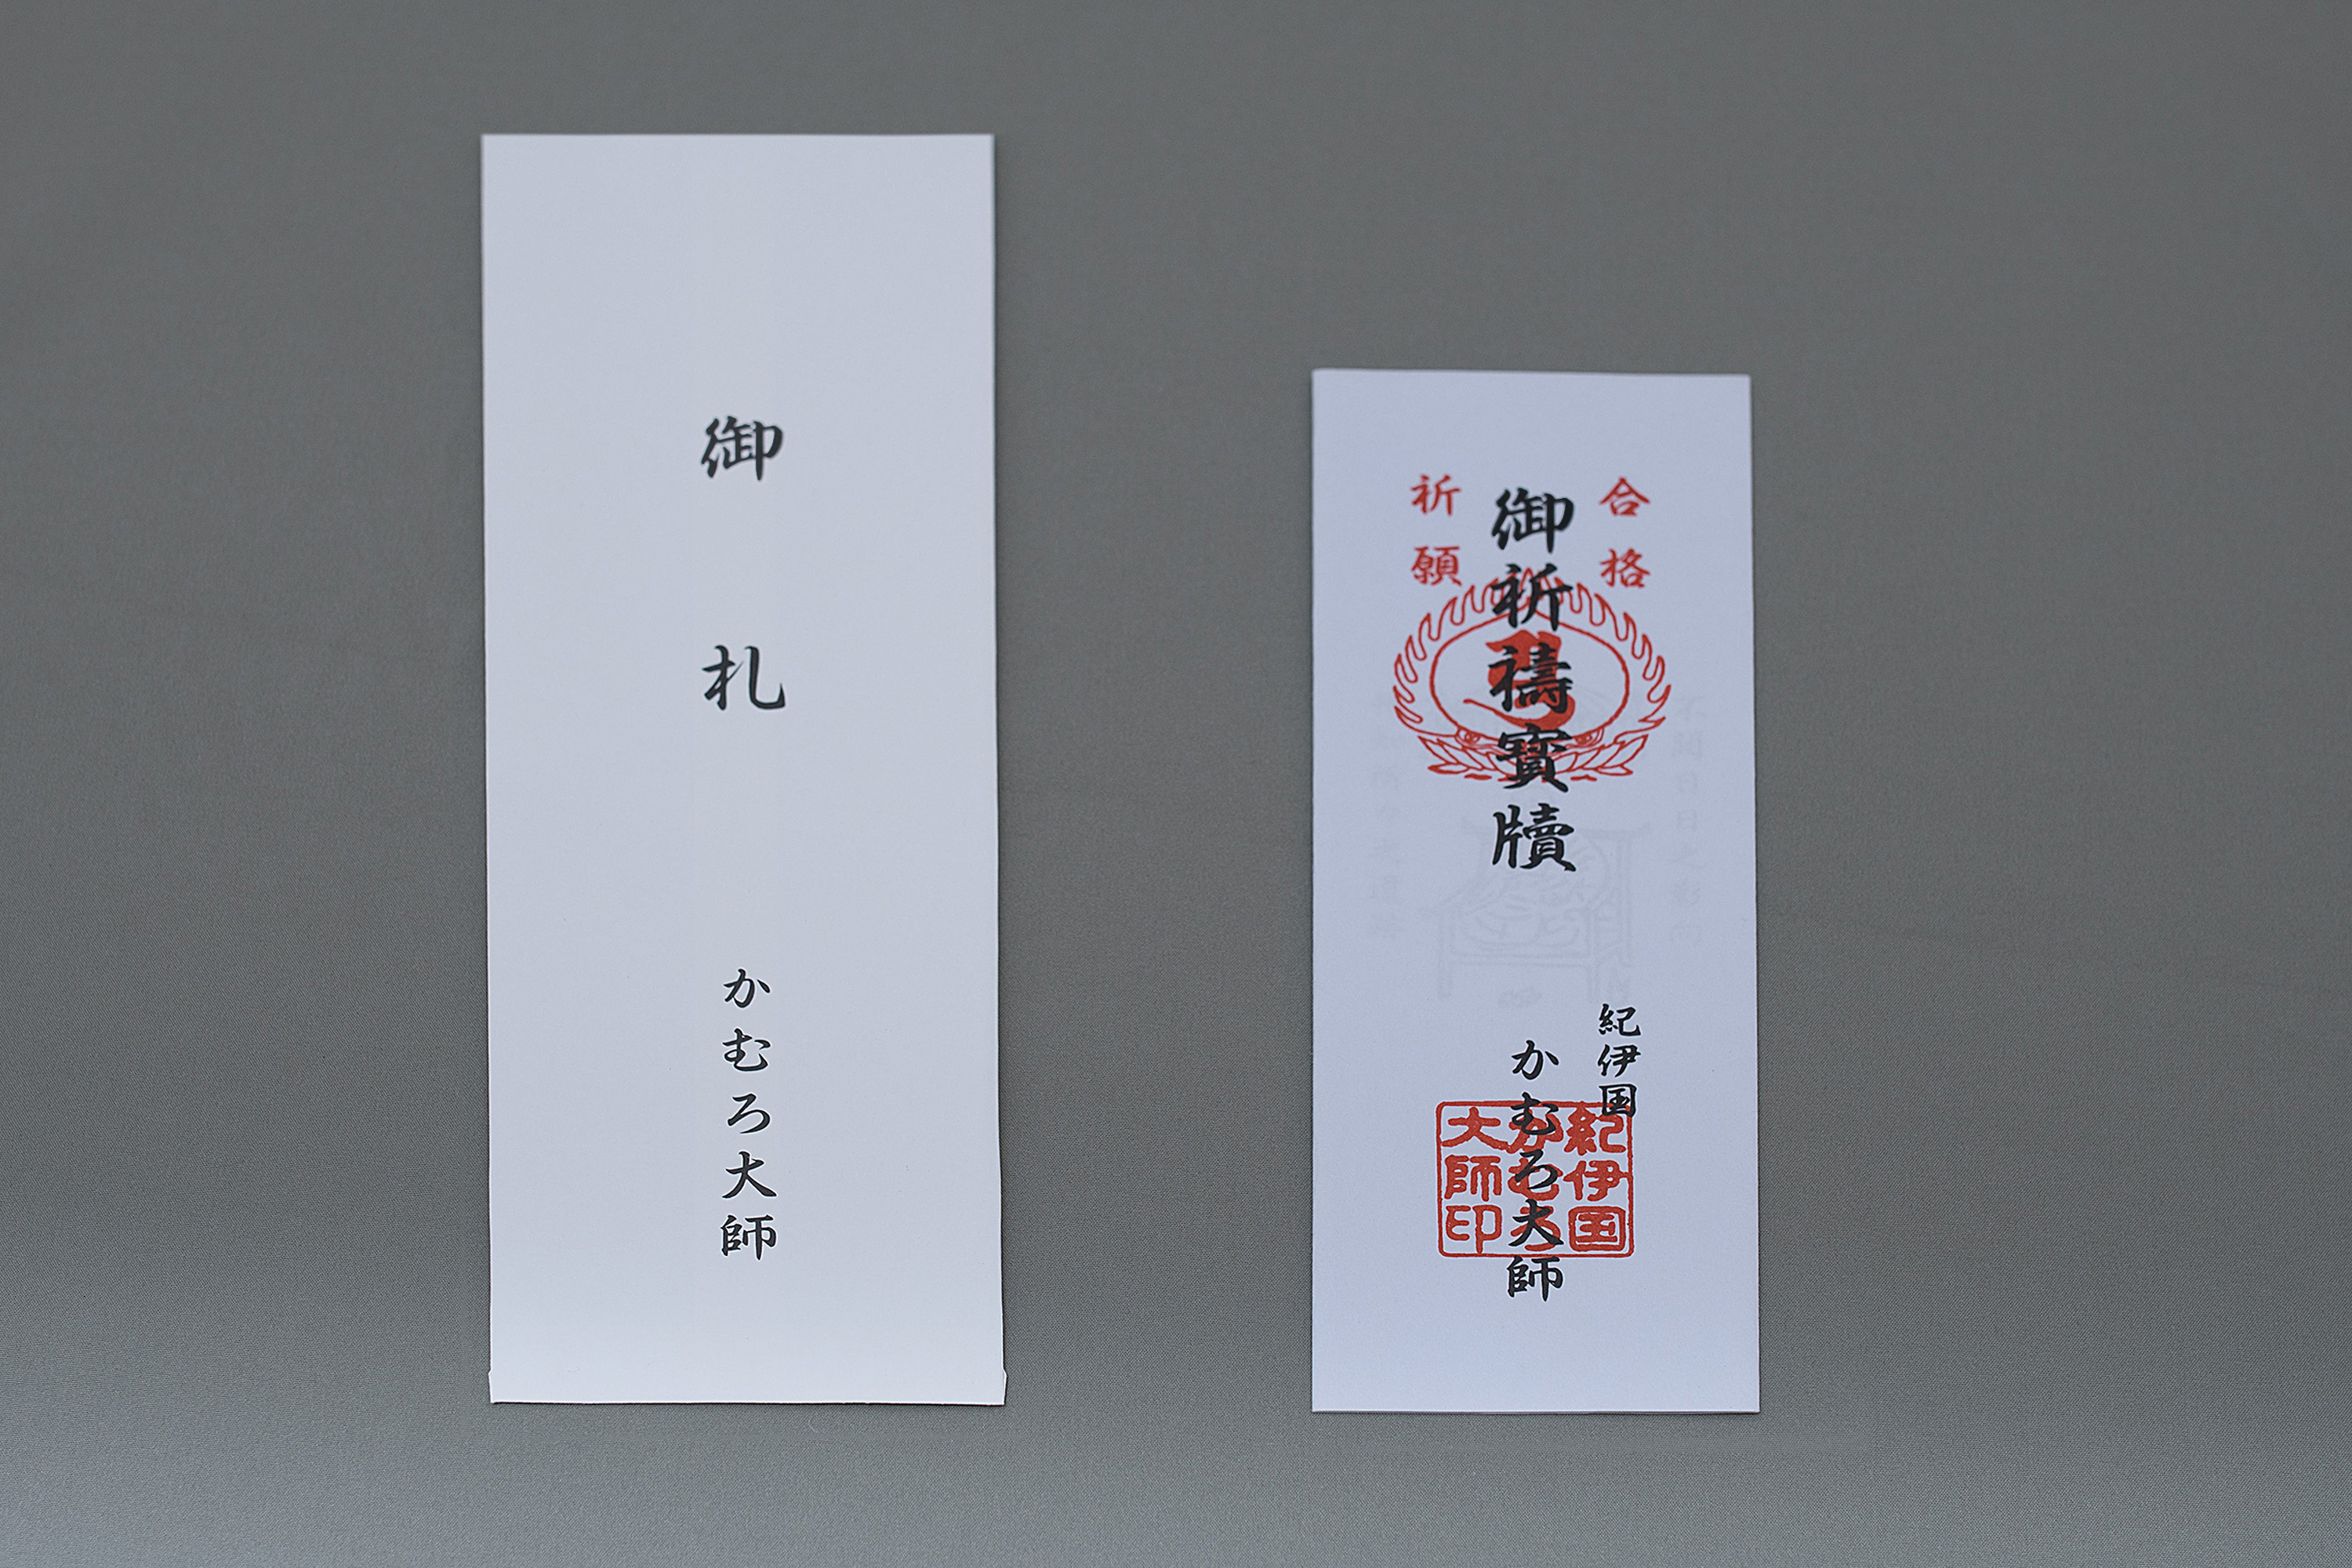 御札
かむろ大師
合格
祈願
御祈禱寶牘
紀伊国
かむろ大師
紀伊国
かむろ
大師印